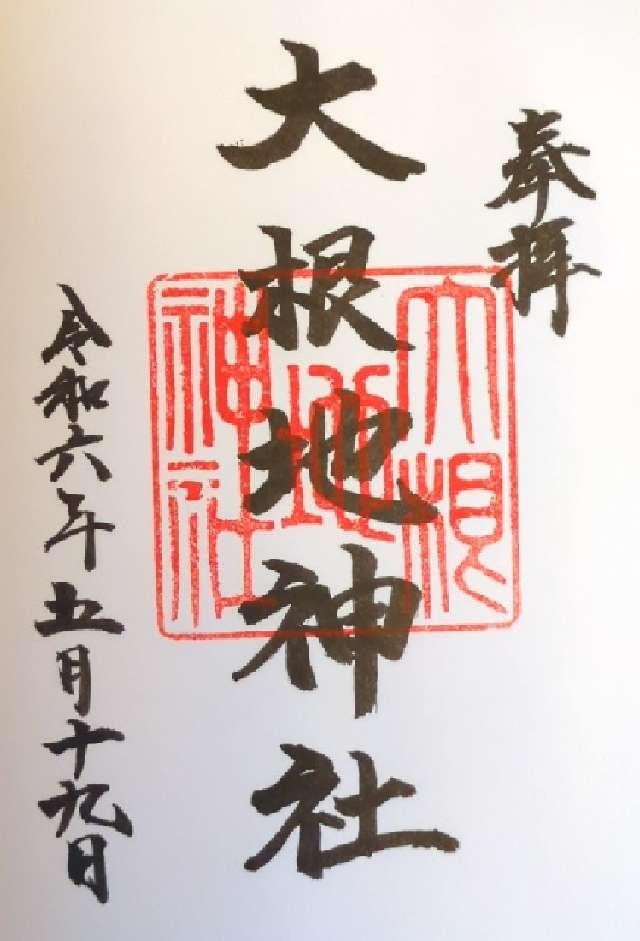 奉拝
大根地神社
大根地神社
令和六年五月十九日